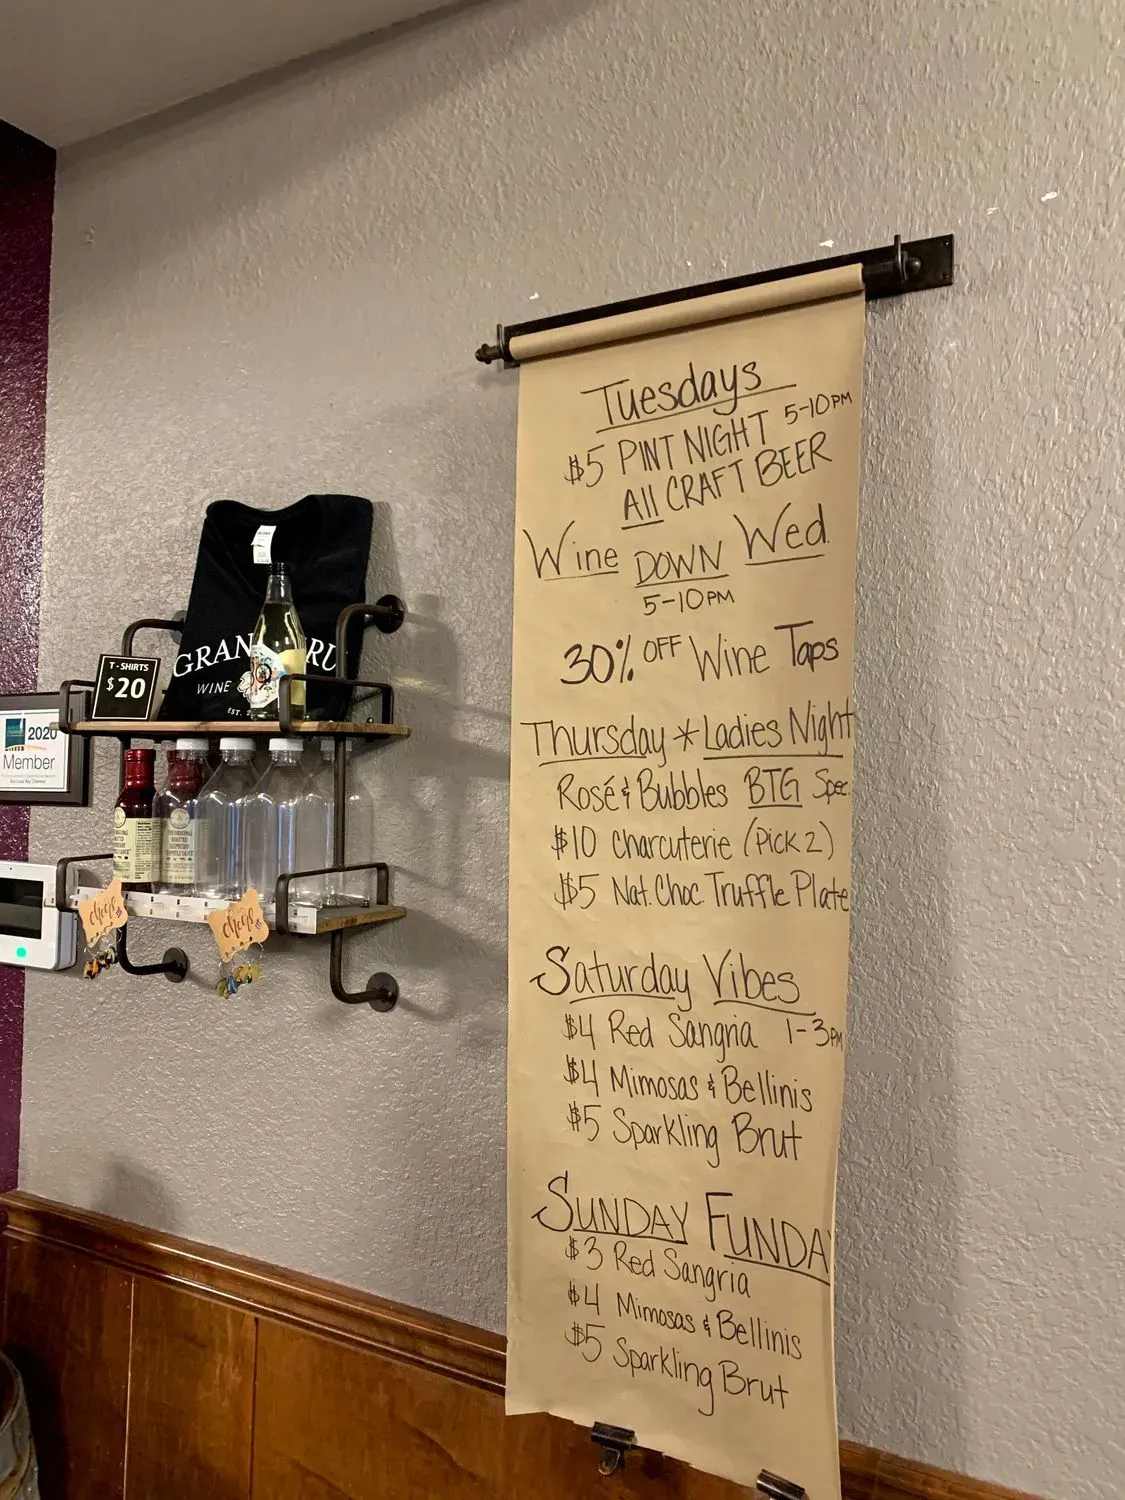 Tuesdays
$5 PINT NIGHT 5-10PM
All CRAFT BEER
Wine DOWN Wed.
5-10PM
30% OFF Wine Taps
Thursday * Ladies Night
Rosé & Bubbles BTG Spec.
$10 Charcuterie (Pick 2)
$5 Nat. Choc. Truffle Plate
Saturday Vibes
$4 Red Sangria 1-3PM
$4 Mimosas & Bellinis
$5 Sparkling Brut
SUNDAY FUNDAY
$3 Red Sangria
$4 Mimosas & Bellinis
$5 Sparkling Brut
GRAN RU
WINE
EST. 2
T-SHIRTS
$20
2020
Member
cheers
cheers